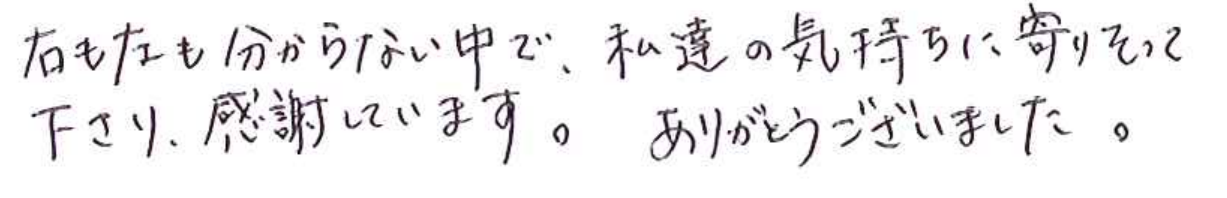 右も左も分からない中で、私達の気持ちに寄りそって
下さり、感謝しています。 ありがとうございました。